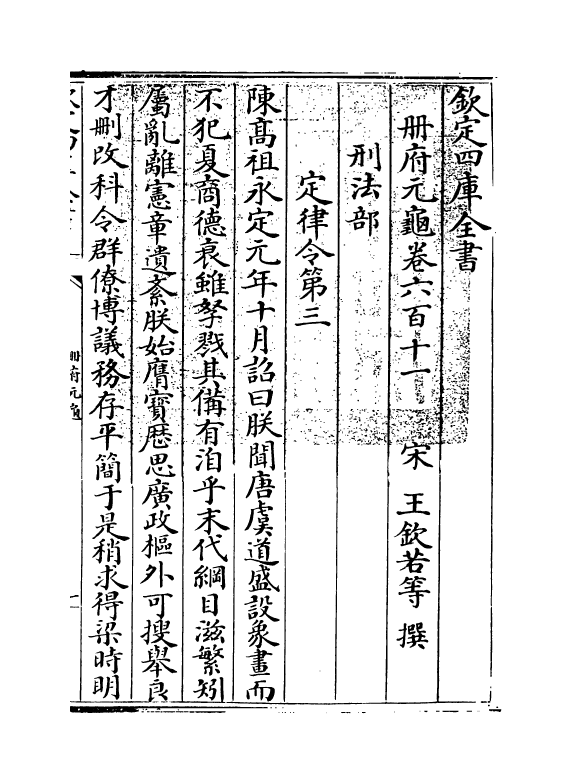 欽定四庫全書
冊府元龜卷六百十一　宋　王欽若等　撰
刑法部
定律令第三
陳髙祖永定元年十月詔曰朕聞唐虞道盛設象畫而
不犯夏商德衰雖孥戮其備有洎乎末代綱目滋繁矧
屬亂離憲章遺紊朕始膺寶厯思廣政樞外可搜舉良
才刪改科令群僚博議務存平簡于是稍求得梁時明
冊府元龜
一